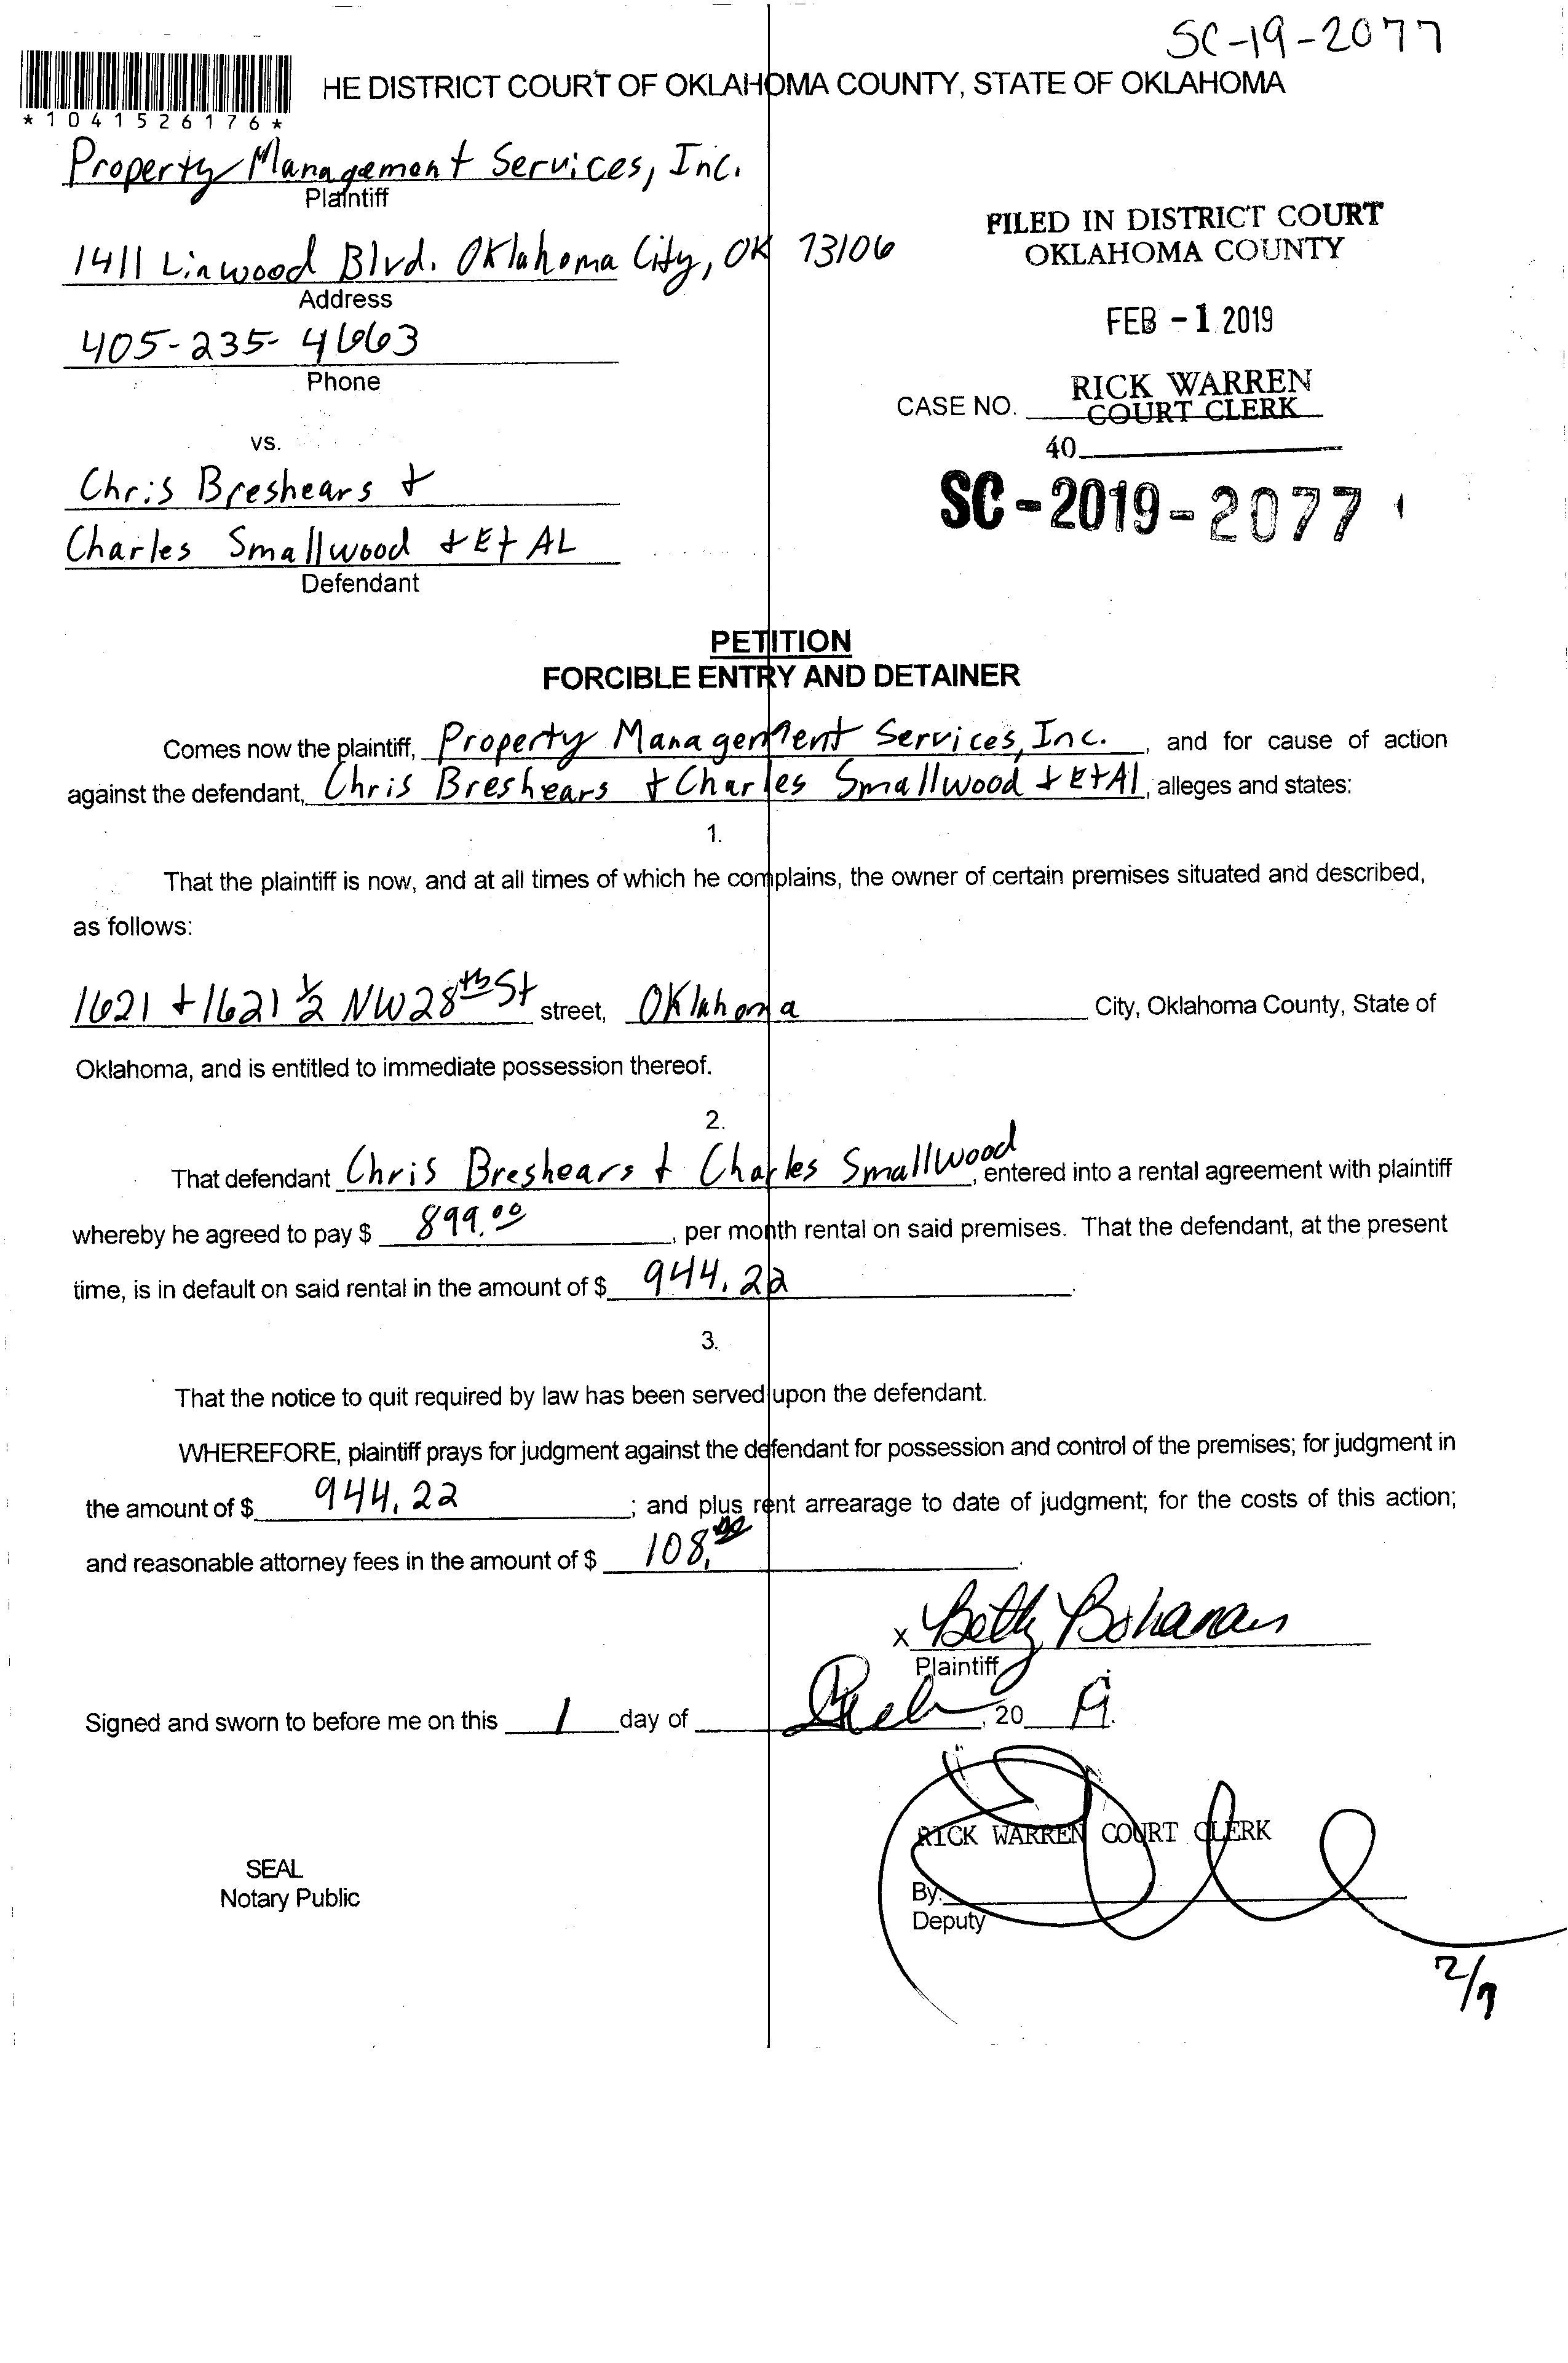 SC-19-2077
HE DISTRICT COURT OF OKLAHOMA COUNTY, STATE OF OKLAHOMA
*1041526176*
Property Management Services, Inc.
Plaintiff
1411 Linwood Blvd. Oklahoma City, OK 73106
Address
405-235-4663
Phone
FILED IN DISTRICT COURT
OKLAHOMA COUNTY
FEB -1 2019
RICK WARREN
CASE NO. COURT CLERK
40
SC-2019-2077
vs.
Chris Breshears +
Charles Smallwood + Et AL
Defendant
PETITION
FORCIBLE ENTRY AND DETAINER
Comes now the plaintiff, Property Management Services, Inc., and for cause of action
against the defendant, Chris Breshears + Charles Smallwood + Et Al, alleges and states:
1.
That the plaintiff is now, and at all times of which he complains, the owner of certain premises situated and described,
as follows:
1621 + 1621 1/2 NW 28th St street, Oklahoma City, Oklahoma County, State of
Oklahoma, and is entitled to immediate possession thereof.
2.
That defendant Chris Breshears + Charles Smallwood, entered into a rental agreement with plaintiff
whereby he agreed to pay $ 899.00, per month rental on said premises. That the defendant, at the present
time, is in default on said rental in the amount of $ 944.22.
3.
That the notice to quit required by law has been served upon the defendant.
WHEREFORE, plaintiff prays for judgment against the defendant for possession and control of the premises; for judgment in
the amount of $ 944.22; and plus rent arrearage to date of judgment; for the costs of this action;
and reasonable attorney fees in the amount of $ 108.00.
x Betty Bohanan
Plaintiff
Signed and sworn to before me on this 1 day of Feb, 20 19.
RICK WARREN COURT CLERK
SEAL
Notary Public
By:
Deputy
2/7